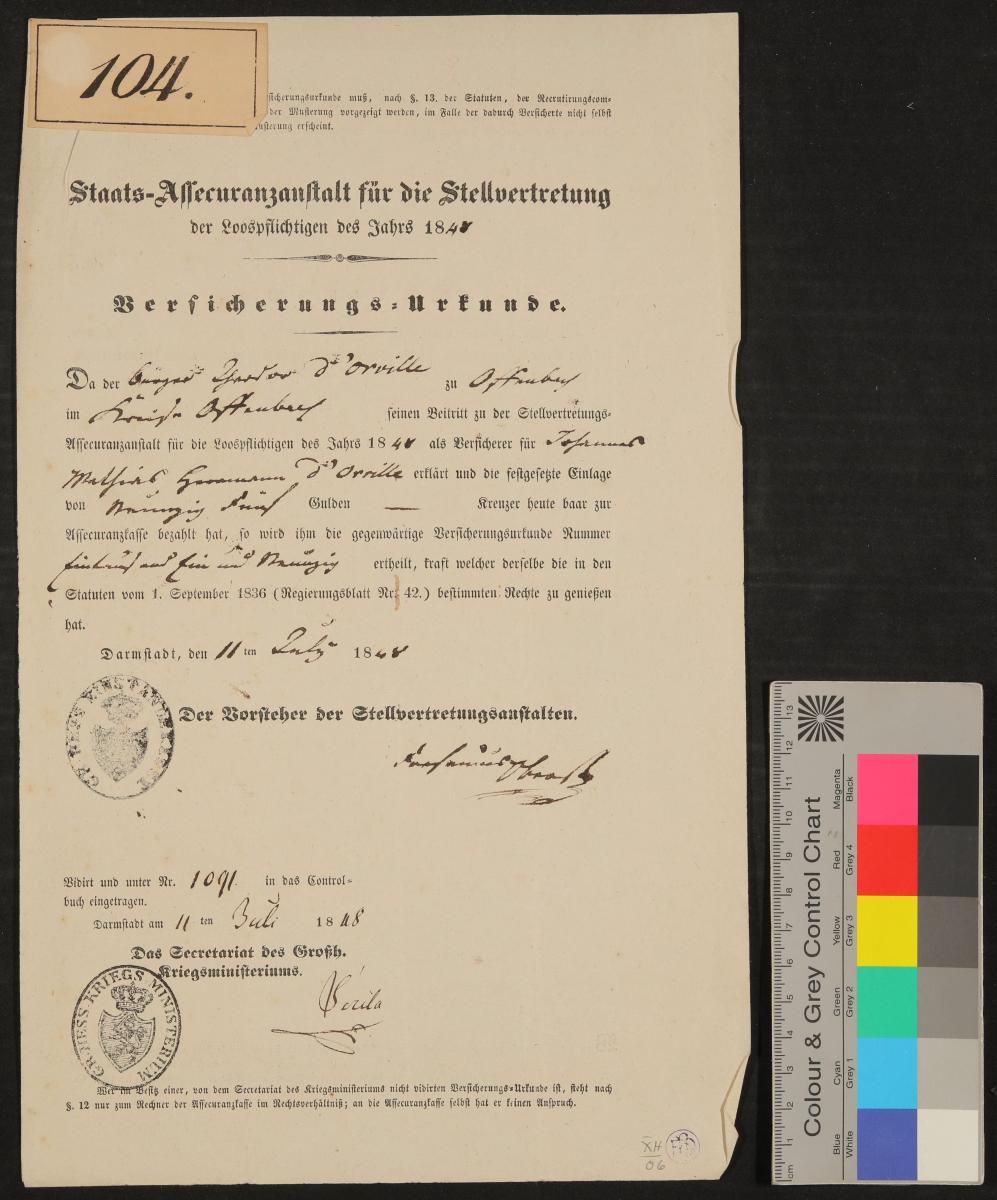 104.
sicherungsurkunde muß, nach §. 13. der Statuten, der Recrutirungscom-
der Musterung vorgezeigt werden, im Falle der dadurch Versicherte nicht selbst
usterung erscheint.
Staats-Assecuranzanstalt für die Stellvertretung
der Loospflichtigen des Jahrs 1848
Versicherungs-Urkunde.
Da der Bürger Theodor d'Orville zu Offenbach
im Kreise Offenbach seinen Beitritt zu der Stellvertretungs-
Assecuranzanstalt für die Loospflichtigen des Jahrs 1848 als Versicherer für Johannes
Mathias Herrmann d'Orville erklärt und die festgesetzte Einlage
von Neunzig Fünf Gulden — Kreuzer heute baar zur
Assecuranzkasse bezahlt hat, so wird ihm die gegenwärtige Versicherungsurkunde Nummer
Eintausend Ein und Neunzig ertheilt, kraft welcher derselbe die in den
Statuten vom 1. September 1836 (Regierungsblatt Nr. 42.) bestimmten Rechte zu genießen
hat.
Darmstadt, den 11ten July 1848
Der Vorsteher der Stellvertretungsanstalten.
Vidirt und unter Nr. 1091. in das Control-
buch eingetragen.
Darmstadt am 11ten Juli 1848
Das Secretariat des Großh.
Kriegsministeriums.
GR. HESS. KRIEGS MINISTERIUM
Wer im Besitz einer, von dem Secretariat des Kriegsministeriums nicht vidirten Versicherungs-Urkunde ist, steht nach
§. 12 nur zum Rechner der Assecuranzkasse im Rechtsverhältniß; an die Assecuranzkasse selbst hat er keinen Anspruch.
XH
06
Colour & Grey Control Chart
Blue Cyan Green Yellow Red Magenta
White Grey 1 Grey 2 Grey 3 Grey 4 Black
cm 1 2 3 4 5 6 7 8 9 10 11 12 13